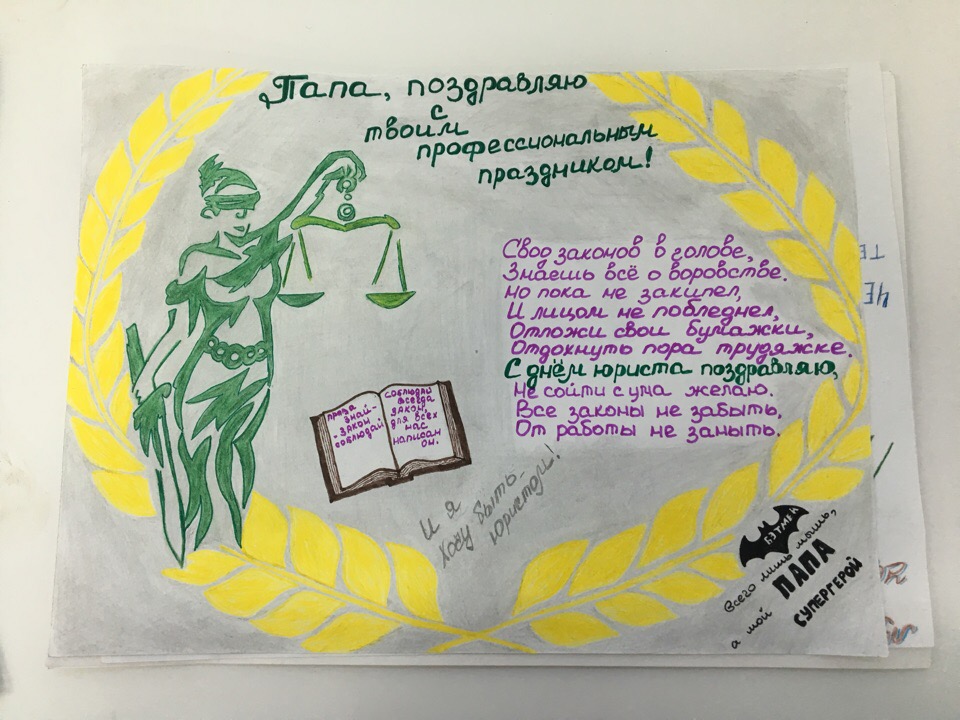 Папа, поздравляю
с
твоим
профессиональным
праздником!
Свод законов в голове,
Знаешь всё о воровстве.
Но пока не закипел,
И лицом не побледнел,
Отложи свои бумажки,
Отдохнуть пора трудяжке.
С днём юриста поздравляю,
Не сойти с ума желаю.
Все законы не забыть,
От работы не заныть.
права
знай-
закон
соблюдай
соблюдай
всегда
закон,
для всех
нас
написан
он.
И я
хочу быть
юристом!
БЭТМЕН
всего лишь мышь,
а мой ПАПА
СУПЕРГЕРОЙ
ТЕ
ЧЕ